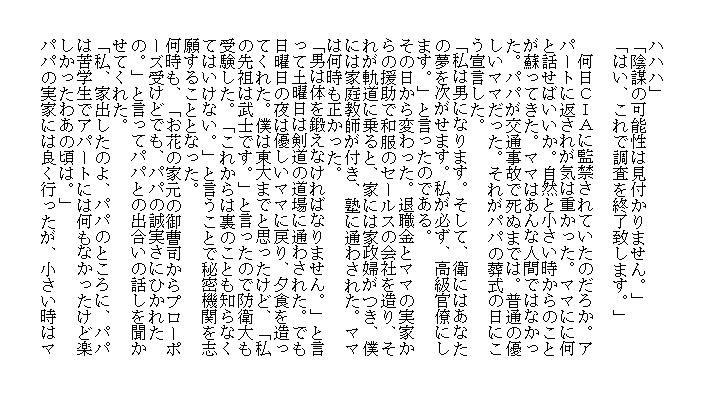 ハハハ」
「陰謀の可能性は見付かりません。」
「はい、これで調査を終了致します。」
何日ＣＩＡに監禁されていたのだろか。ア
パートに返されが気は重かった。ママにに何
と話せばいいか。自然と小さい時からのこと
が蘇ってきた。ママはあんな人間ではなかっ
た。パパが交通事故で死ぬまでは。普通の優
しいママだった。それがパパの葬式の日にこ
う宣言した。
「私は男になります。そして、衛にはあなた
の夢を次がせます。私が必ず、高級官僚にし
ます。」と言ったのである。
その日から変わった。退職金とママの実家か
らの援助で和服のセールスの会社を造り、そ
れが軌道に乗ると、家には家政婦がつき、僕
には家庭教師が付き、塾に通わされた。ママ
は何時も正かった。
「男は体を鍛えなければなりません。」と言
って土曜日は剣道の道場に通わされた。でも
日曜日の夜は優しいママに戻り、夕食を造っ
てくれた。僕は東大までと思ったけど、「私
の先祖は武士です。」と言ったので防衛大も
受験した。「これからは裏のことも知らなく
てはいけない。」と言うことで秘密機関を志
願することとなった。
何時も、「お花の家元の御曹司からプローポ
ーズ受けどでも、パパの誠実さにひかれた
の。」と言ってパパとの出合いの話しを聞か
せてくれた。
「私、家出したのよ、パパのところに、パパ
は苦学生でアパートには何もなかったけど楽
しかったわあの頃は。」
パパの実家には良く行ったが、小さい時はマ